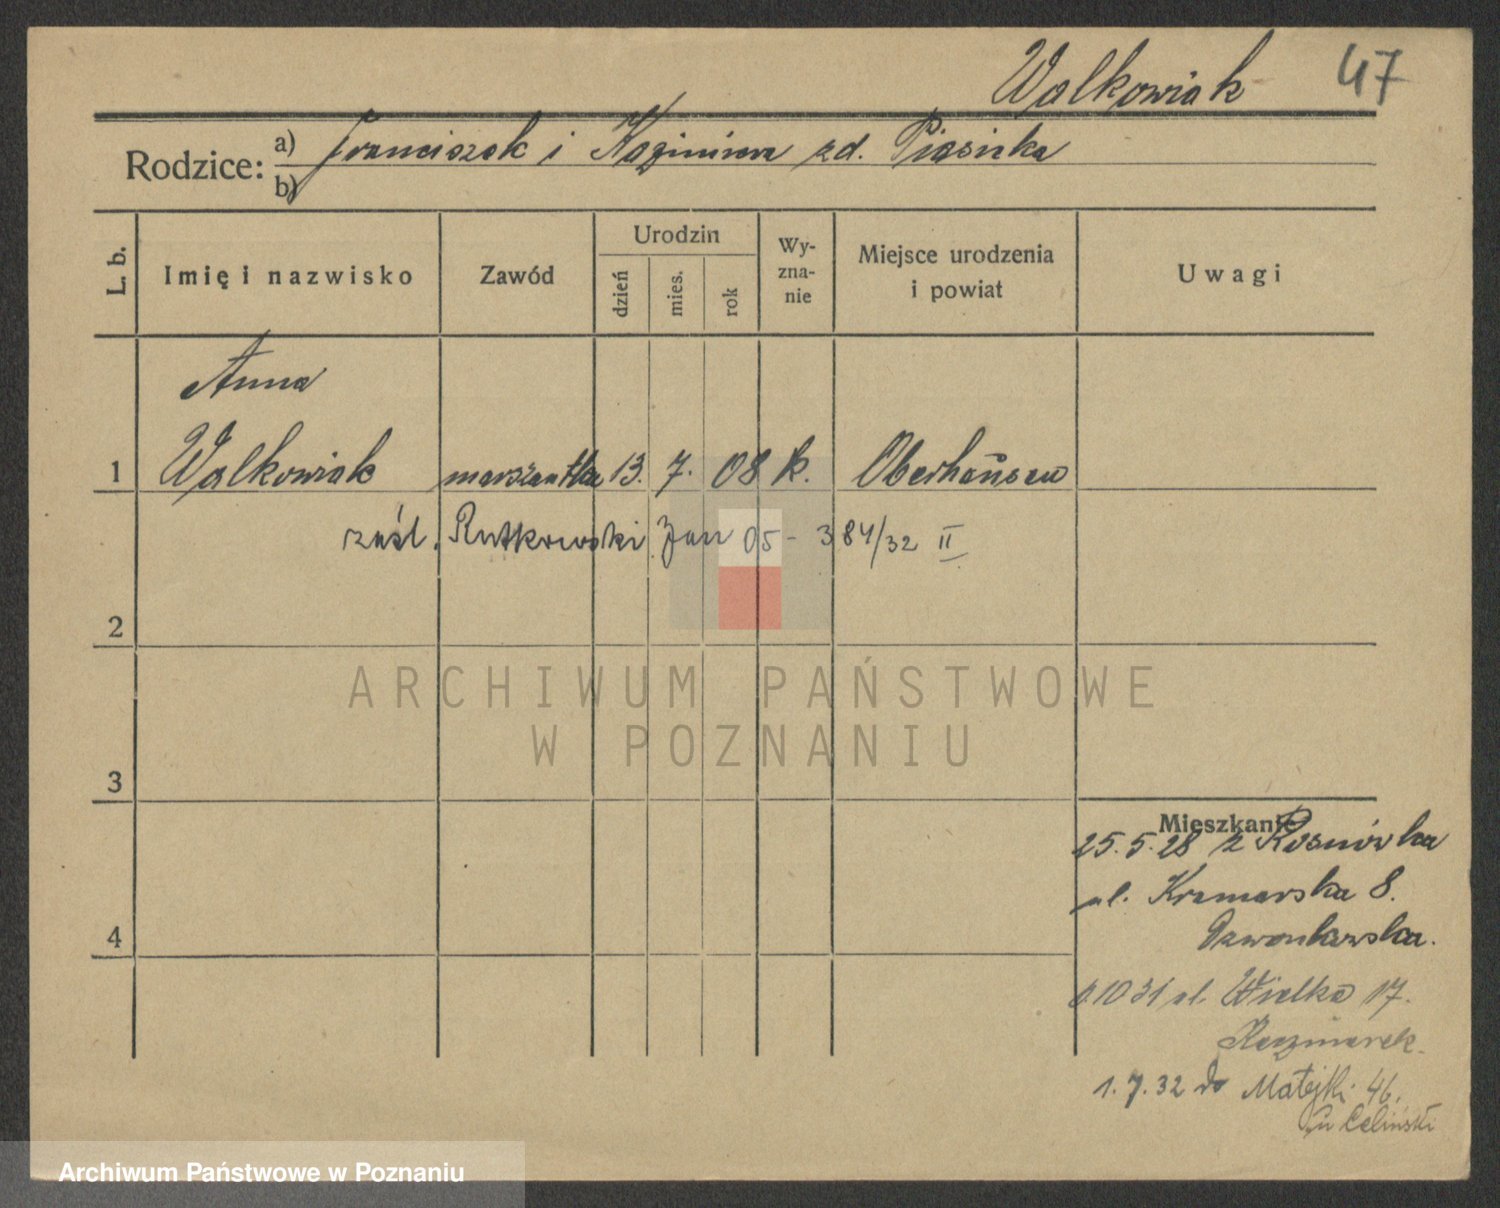 Walkowiak 47
Rodzice: a) Franciszek i Kazimiera zd. Piasicka
b)
L. b. Imię i nazwisko Zawód Urodzin dzień mies. rok Wy-zna-nie Miejsce urodzenia i powiat Uwagi
Anna
1 Walkowiak 13. 7. 08 k. Oberhausen
zaśl. Rutkowski Jan 05 - 384/32 II
2
ARCHIWUM PAŃSTWOWE
W POZNANIU
3
Mieszkanie
25.5.28 z Rosnówka
ul. Kramarska 8.
4
ul. Wielka 17.
Kaczmarek.
1.7.32 do Matejki 46.
u Celiński
Archiwum Państwowe w Poznaniu